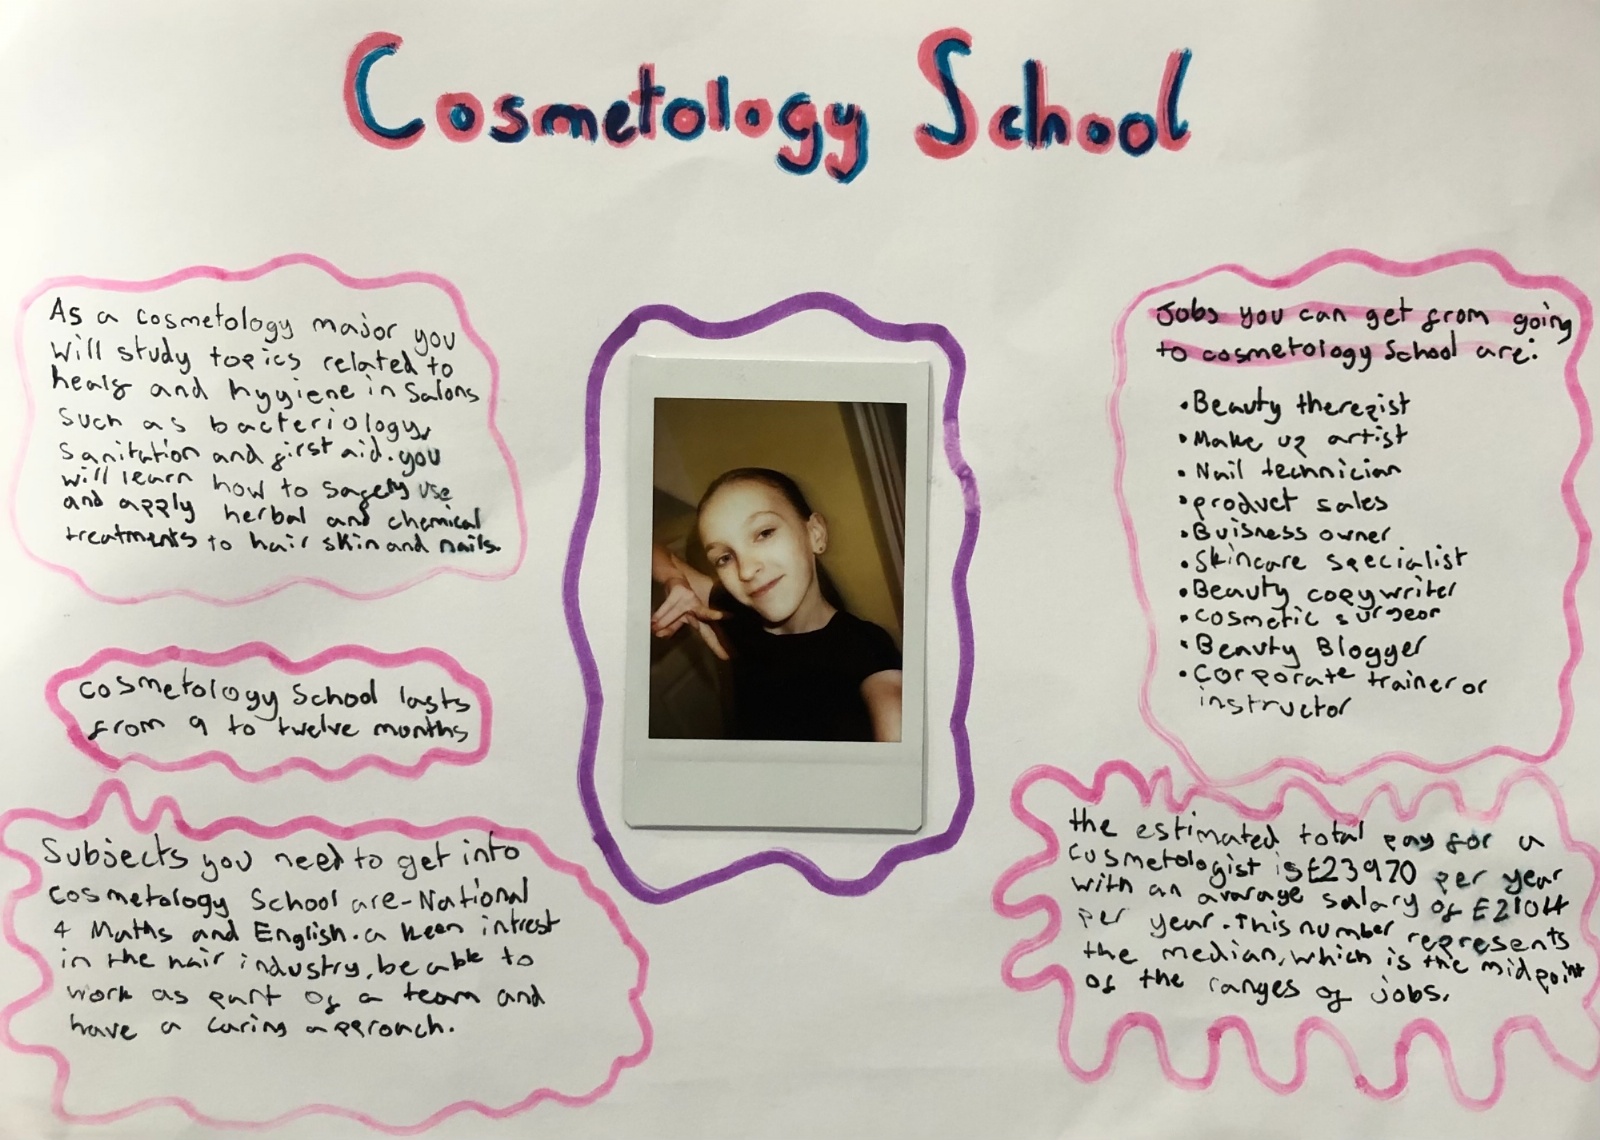 Cosmetology School
As a cosmetology major you
will study topics related to
and hygiene in Salons
Such as bacteriology,
sanitation and first aid. you
will learn how to safely use
and apply herbal and chemical
treatments to hair skin and nails.
cosmetology School lasts
from 9 to twelve months
Subjects you need to get into
cosmetology School are-National
4 Maths and English. a keen intrest
in the hair industry, be able to
work as part of a team and
have a caring approach.
Jobs you can get from going
to cosmetology School are:
• Beauty therepist
• Make up artist
• Nail technician
• product sales
• Buisness owner
• Skincare specialist
• Beauty copywriter
• cosmetic surgeon
• Beauty Blogger
• corporate trainer or
instructor
the estimated total pay for a
cosmetologist is £23970 per year
with an avarage salary of £21044
per year. This number represents
the median, which is the midpoint
of the ranges of jobs.